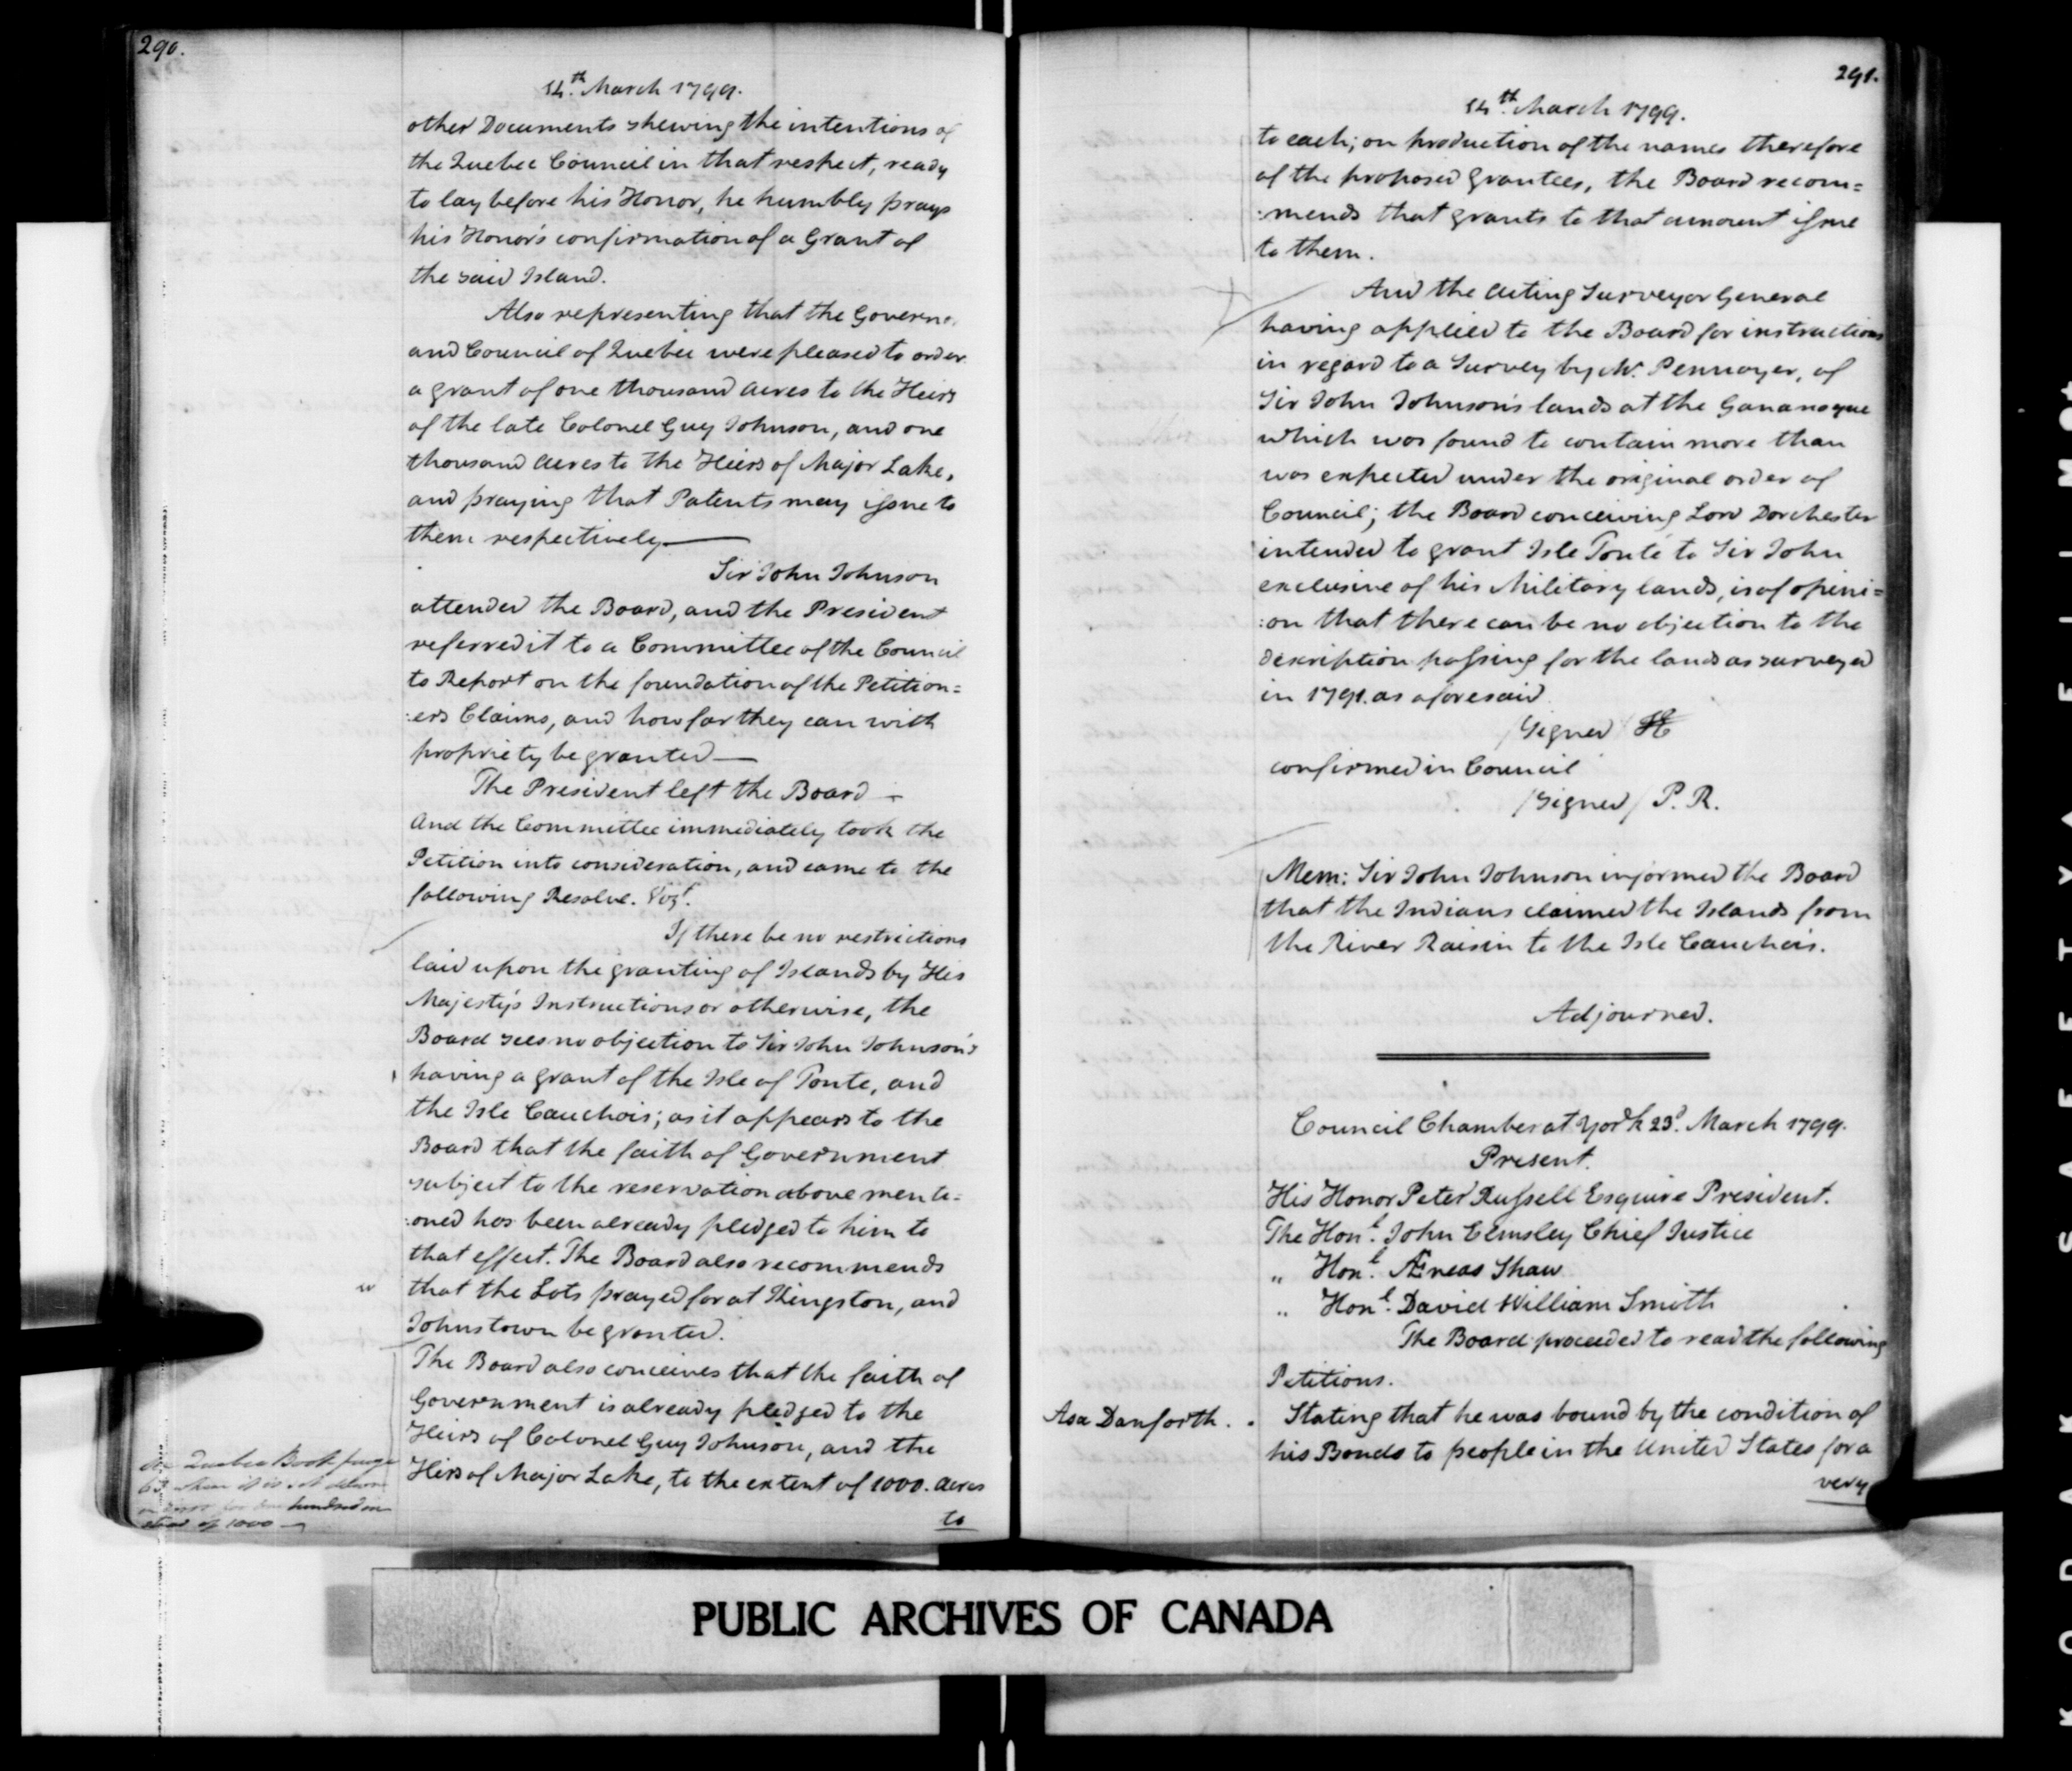 290.
14th. March 1799.
other Documents shewing the intentions of
the Quebec Council in that respect, ready
to lay before his Honor, he humbly prays
his Honor's confirmation of a Grant of
the said Island.
Also representing that the Govern
and Council of Quebec were pleased to order
a grant of one thousand acres to the Heirs
of the late Colonel Guy Johnson, and one
thousand acres to the Heirs of Major Lake,
and praying that Patents may issue to
them respectively —
Sir John Johnson
attended the Board, and the President
referred it to a Committee of the Council
to Report on the foundation of the Petition=
:ers Claims, and how far they can with
propriety be granted —
The President left the Board —
And the Committee immediately took the
Petition into consideration, and came to the
following Resolve. Vizt.
If there be no restrictions
laid upon the granting of Islands by His
Majesty's Instructions or otherwise, the
Board sees no objection to Sir John Johnson's
having a grant of the Isle of Tonte, and
the Isle Cauchois; as it appears to the
Board that the faith of Government
subject to the reservation above menti=
:oned has been already pledged to him to
that effect. The Board also recommends
that the Lots prayed for at Kingston, and
Johnstown be granted.
The Board also conceives that the faith of
Government is already pledged to the
Heirs of Colonel Guy Johnson, and the
Heirs of Major Lake, to the extent of 1000. acres
to
Quebec Book page
63 when it is
for one hundred in
stead of 1000 —
291.
14th. March 1799.
to each; on production of the names therefore
of the proposed grantees, the Board recom=
:mends that grants to that amount issue
to them.
And the Acting Surveyor General
having applied to the Board for instructions
in regard to a Survey by Mr. Pennoyer, of
Sir John Johnson's lands at the Gananoque
which was found to contain more than
was expected under the original order of
Council; the Board conceiving Lord Dorchester
intended to grant Isle Tonté to Sir John
exclusive of his Military lands, is of opini=
:on that there can be no objection to the
description passing for the lands as surveyed
in 1791. as aforesaid
/Signed/
confirmed in Council
/Signed/ P. R.
Mem: Sir John Johnson informed the Board
that the Indians claimed the Islands from
the River Raisin to the Isle Cauchois.
Adjourned.
Council Chamber at York 23d. March 1799.
Present.
His Honor Peter Russell Esquire President.
The Honl. John Elmsley Chief Justice
„ Honl. Æneas Shaw
„ Honl. David William Smith
The Board proceeded to read the following
Petitions.
Asa Danforth. . Stating that he was bound by the condition of
his Bonds to people in the United States for a
very
PUBLIC ARCHIVES OF CANADA